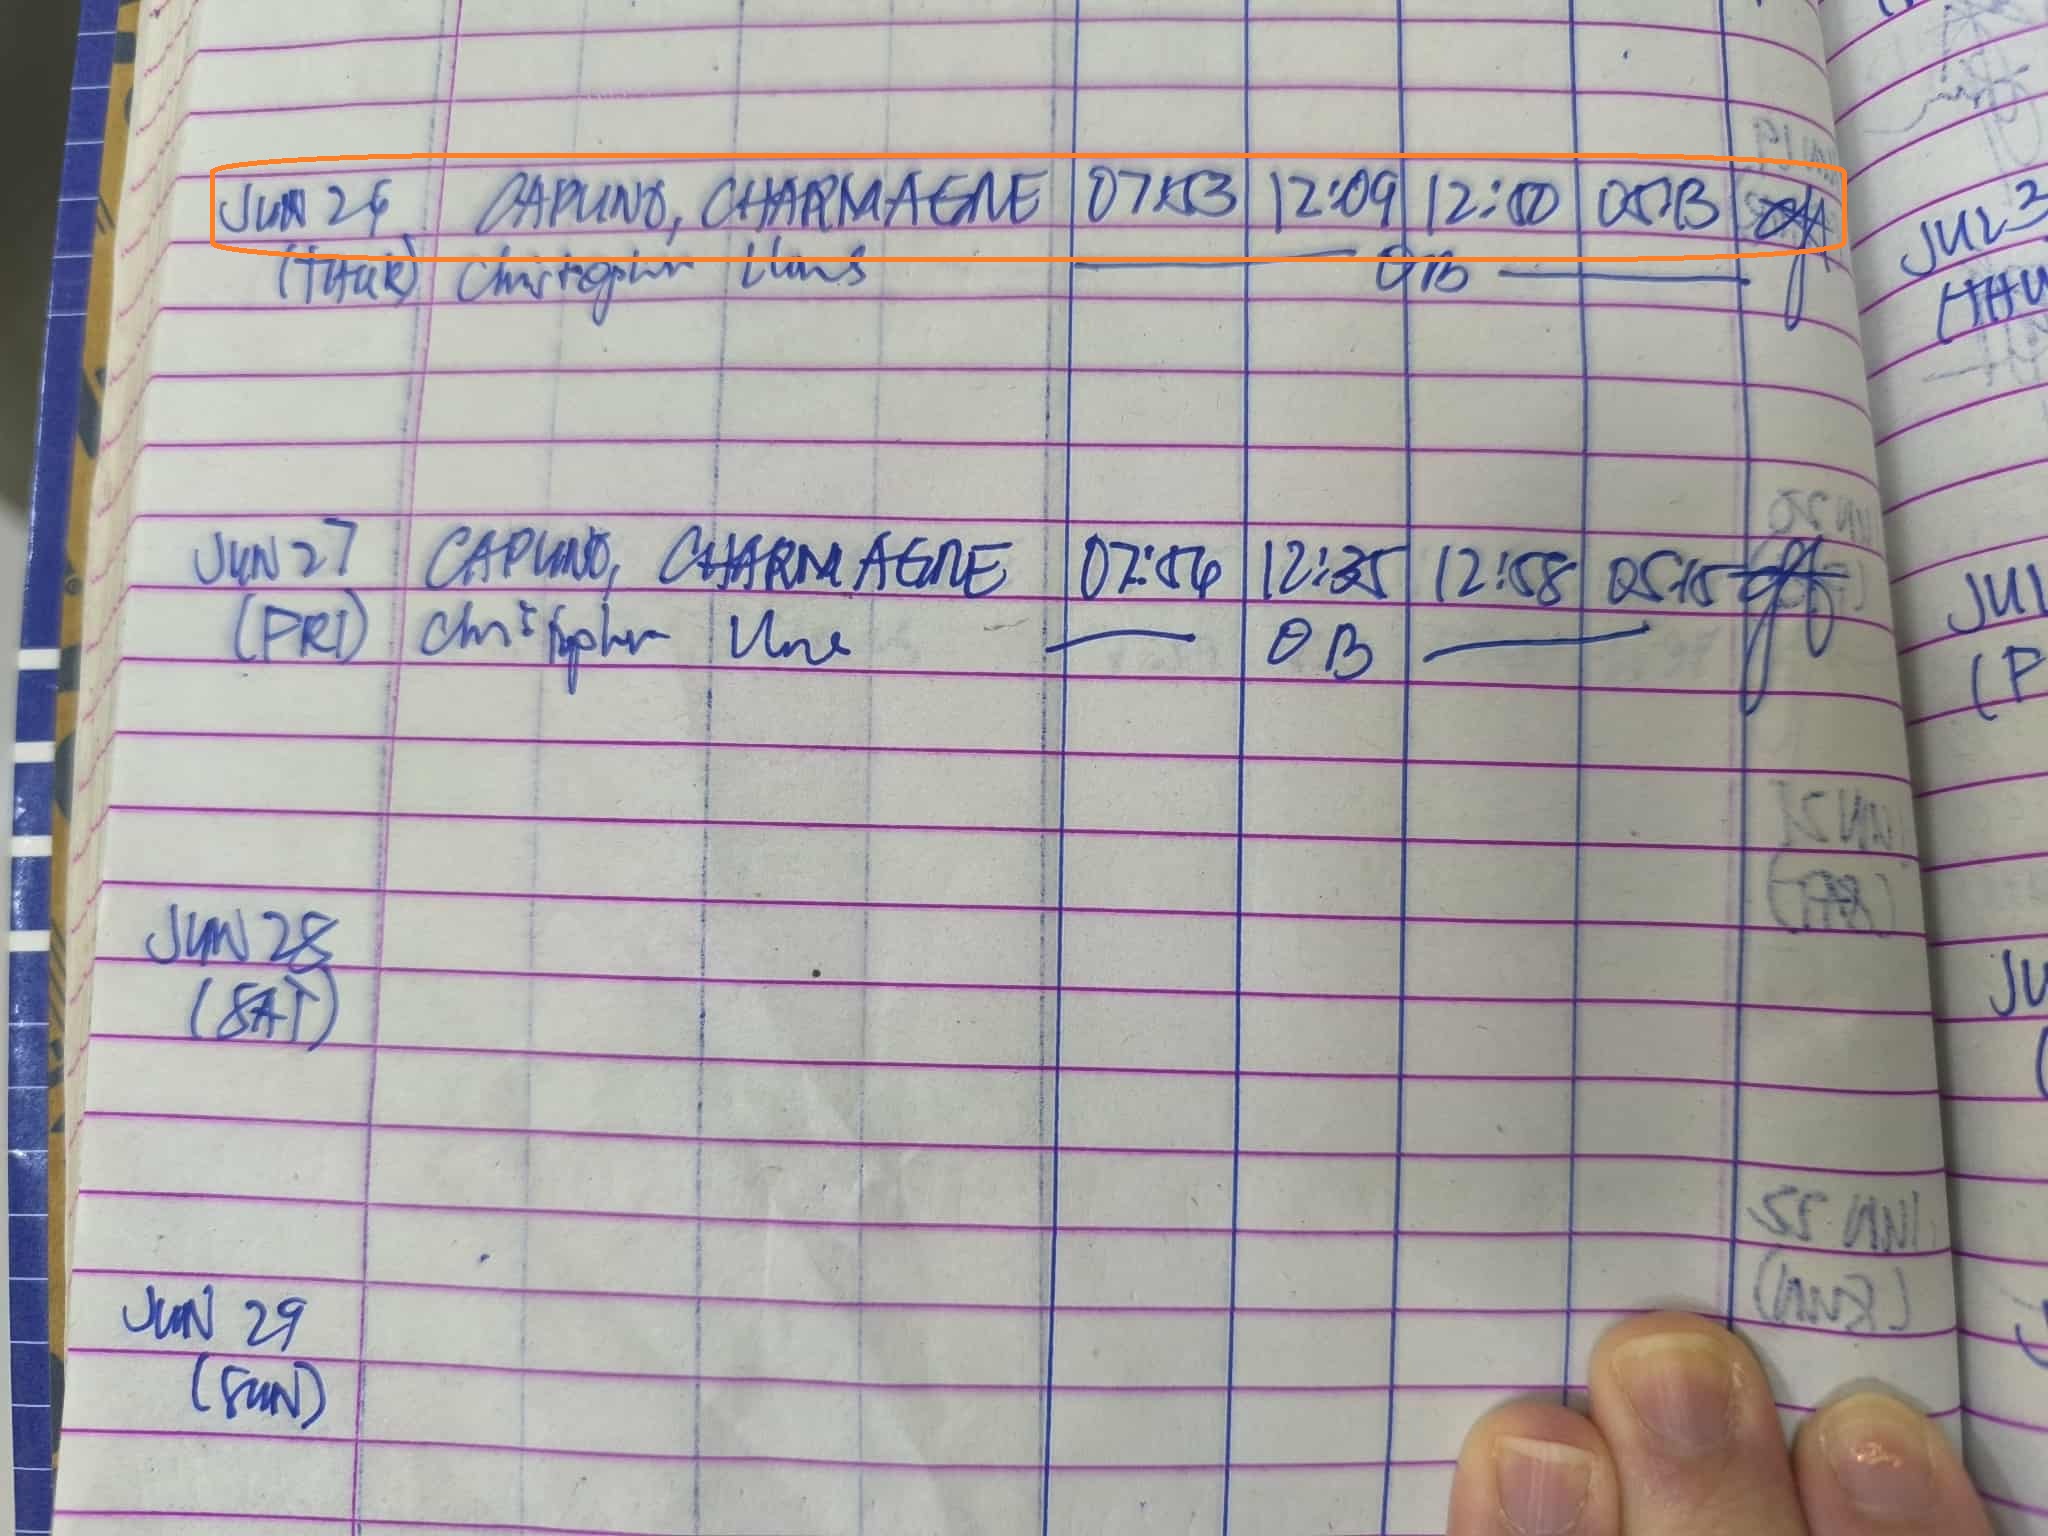 JUN 26 CAPUNO, CHARMAGNE 07:53 12:09 12:10 05:13
(THUR) Christopher OB
JUN 27 CAPUNO, CHARMAGNE 07:54 12:35 12:58 05:15
(FRI) Christopher OB
JUN 28
(SAT)
JUN 29
(SUN)
JUL 3
(THU
JUL
(F
JU
(